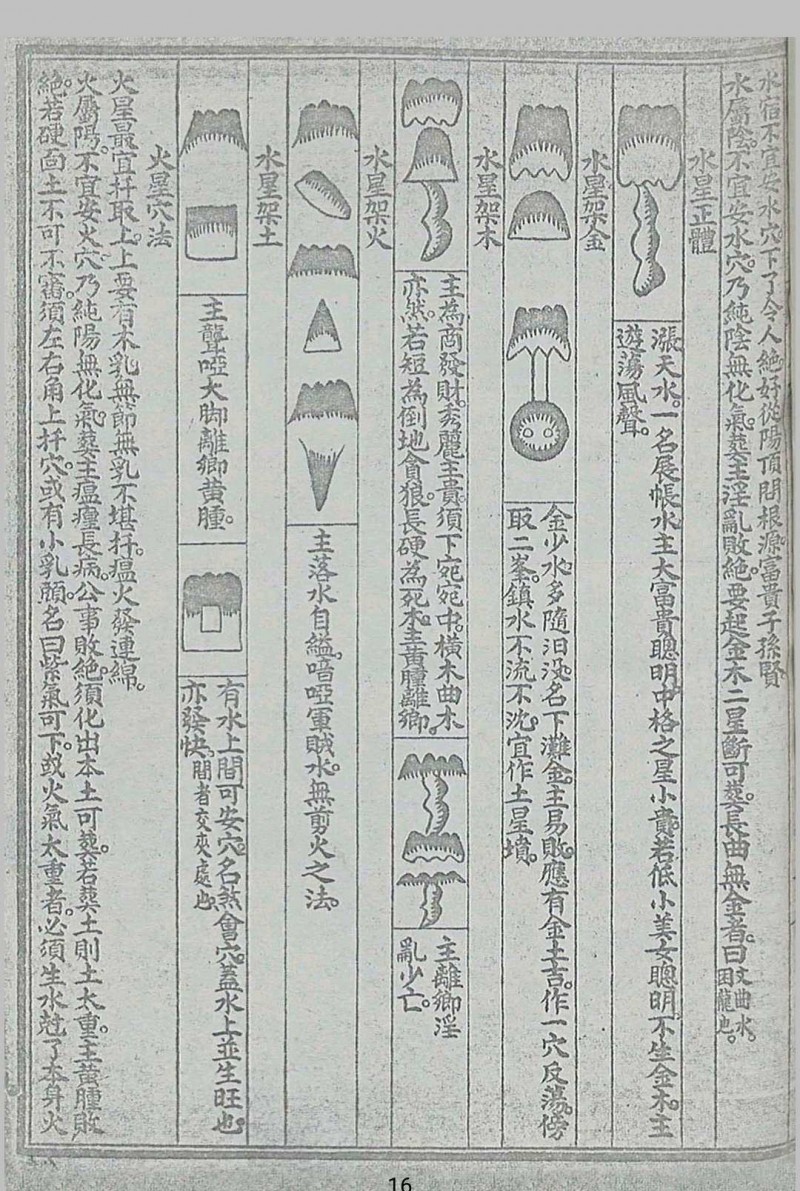 水宿不宜安水穴下了令人絶好從陽頂問根源富貴子孫賢
水屬陰。不宜安水穴。乃純陰無化氣。葬主淫亂敗絶。要起金木二星斷可葬。長曲無金者。曰文曲水。困龍也。
水星正體
漲天水。一名展帳水主大富貴聰明。中格之星小貴。若低小美女聰明。不生金木。主
遊蕩風聲。
水星架金
金少水多隨汩没。名下灘金。主易敗。應有金土吉。作一穴反蕩。傍
取二峯。鎮水不流不沈。宜作土星墳。
水星架木
主為商發財。秀麗主貴。須下宛宛中。橫木曲木
亦然。若短為倒地貪狼。長硬為死木。主黄腫離鄉。
主離鄉淫
亂少亡。
水星架火
主落水自縊。喑啞軍賊。水無剪火之法。
水星架土
主聾啞大脚離鄉黄腫。
有水上間可安穴。名煞會穴。蓋水上並生旺也。
亦發快。間者交夾處也。
火星穴法
火星最宜扦取上。上要有木乳無節無乳不堪扦。瘟火發連綿。
火屬陽。不宜安火穴。乃純陽無化氣。葬主瘟㾮長病。公事敗絶。須化出本土可葬。若葬土則土太重。主黄腫敗
絶。若硬面土不可不審。須左右角上扦穴。或有小乳願名曰紫氣可下。或火氣太重者。必須生水尅了本身火
16